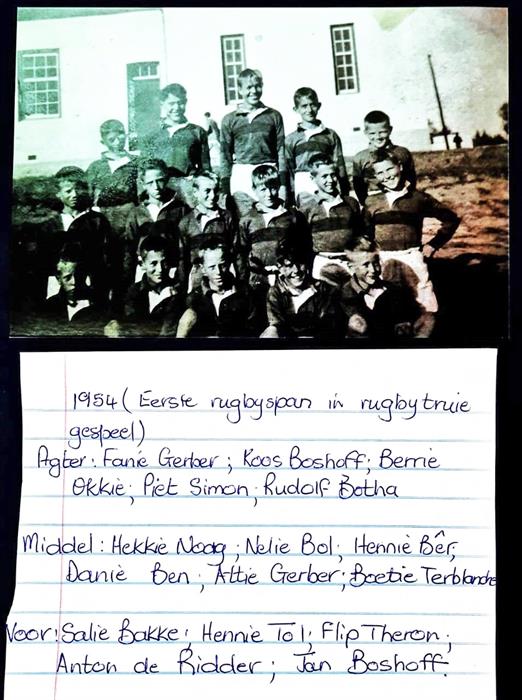 1954 (Eerste rugbyspan in rugbytruie
gespeel)
Agter: Fanie Gerber; Koos Boshoff; Bernie
Okkie; Piet Simon; Rudolf Botha
Middel: Hekkie Noag; Nelie Bol; Hennie Bêr;
Danie Ben; Attie Gerber; Boetie Terblanche
Voor: Salie Bakke; Hennie Tol; Flip Theron;
Anton de Ridder; Jan Boshoff.